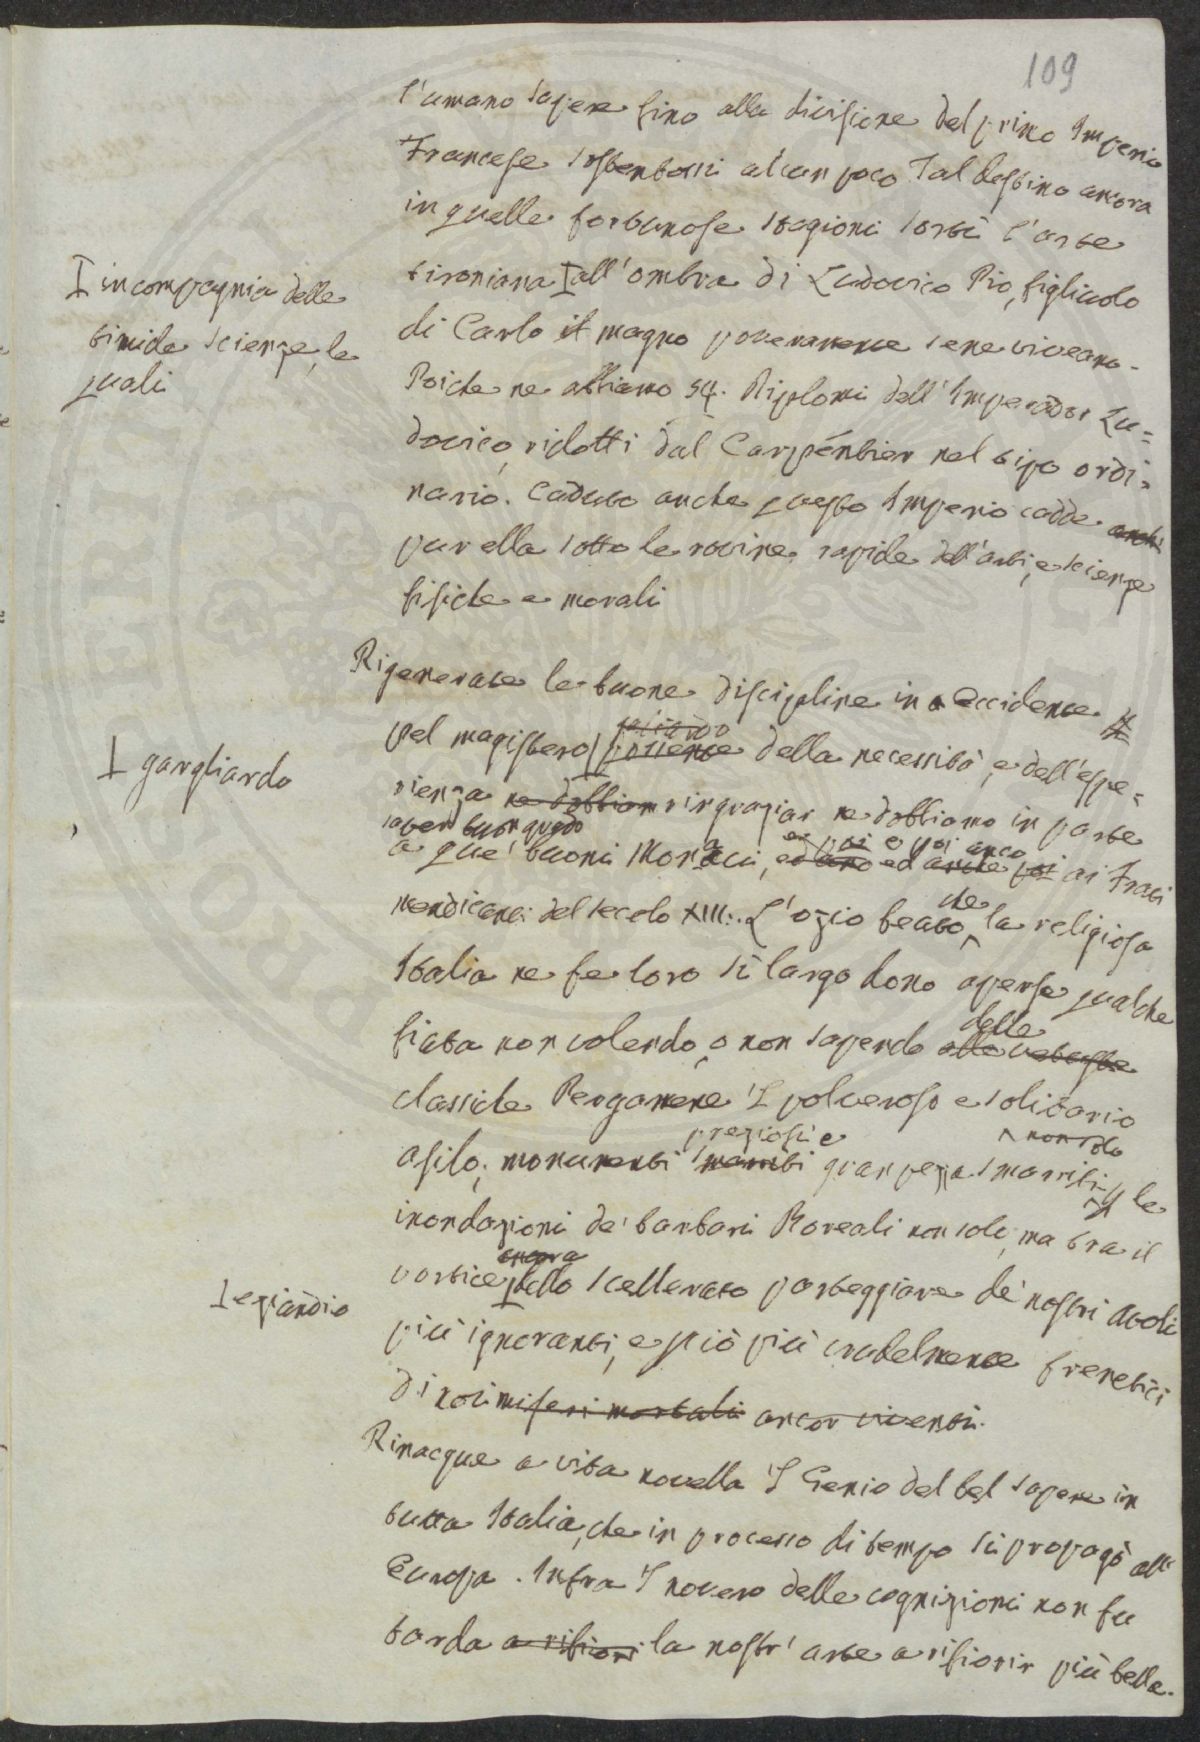 109
l'umano sapere fino alla divisione del primo Imperio
Francese sostentossi alcun poco Tal destino ancora
in quelle fortunose stagioni sortì l'arte
tironiana all'ombra di Ludovico Pio, figliuolo
I in compagnia delle
timide scienze, le
quali
di Carlo il magno poveramente sene viveano.
Poiche ne abbiamo 54. Diplomi dell'Imperador Lu=
dovico, ridotti dal Carpéntier nel tipo ordi=
nario. Caduto anche questo Imperio cadde anch'
pur ella sotto le rovine rapide dell'arti, e scienze
fisiche e morali
Rigenerate le buone discipline in Occidente
pel magistero possente della necessità, e dell'espe=
I gargliardo
rienza ne dobbiam ringraziar ne dobbiamo in parte
saper buon grado
a que' buoni Monaci, e poi e poi anco ai Frati
mendicanti del secolo XIII. L'ozio beato, che la religiosa
Italia ne fe loro sì largo dono aperse qualche
fiata non volendo, o non sapendo delle alle vetuste
classiche Pergamene 'l polveroso e solitario
asilo; monumenti preziosi e smarriti gran pezza smarriti non solo le
inondazioni de' barbari Boreali non sole, ma tra il
vortice ancora dello scellerato parteggiare de' nostri avoli
I eziandio
più ignoranti, e perciò più crudelmente frenetici
di noi miseri mortali ancor viventi.
Rinacque a vita novella 'l Genio del bel sapere in
tutta Italia, che in processo di tempo si propagò all'
Europa. Infra 'l novero delle cognizioni non fu
tarda a rifiori la nostr' arte a rifiorir più bella.